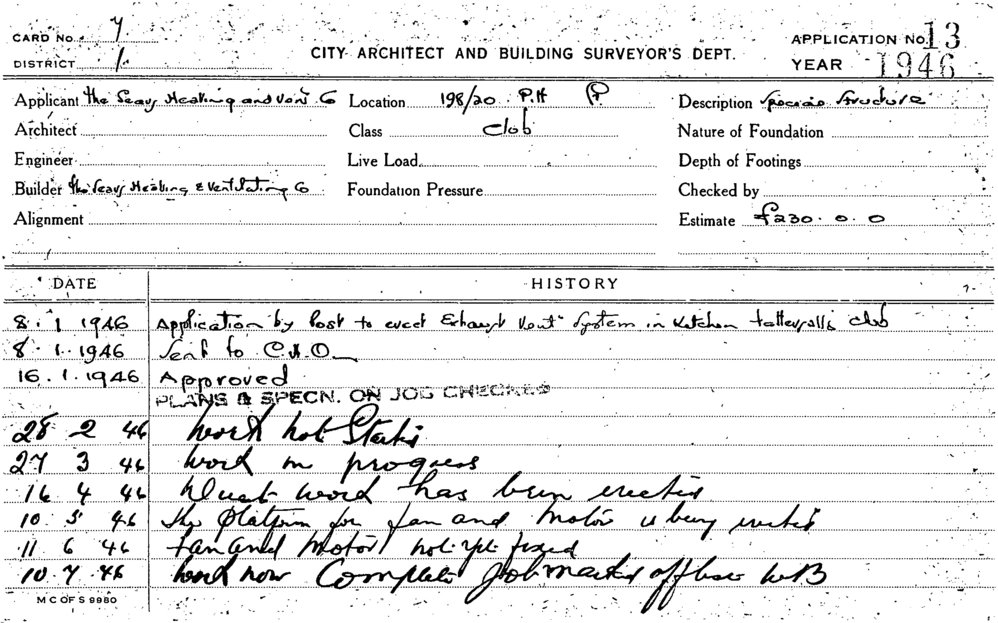 CARD No. 7
DISTRICT 1.
CITY ARCHITECT AND BUILDING SURVEYOR'S DEPT.
APPLICATION No. 13
YEAR 1946
Applicant the Seavy Heating and Vent Co Location 198/20 P.H Description Special Structure
Architect Class Club Nature of Foundation
Engineer Live Load Depth of Footings
Builder the Seavy Heating & Ventilating Co Foundation Pressure Checked by
Alignment Estimate £230.0.0
DATE HISTORY
8. 1 1946 Application by Post to erect Exhaust Vent" System in Kitchen Tattersalls Club
8. 1. 1946 Sent to C.H.O.
16. 1. 1946 Approved
PLANS & SPECN. ON JOB CHECKED
28 2 46 work not Started
27 3 46 work in progress
16 4 46 Duct work has been erected
10 5 46 the platform for fan and motor is being erected
11 6 46 fan and motor not yet fixed
10. 7. 46 work now Complete Job marked off
M C OF S 9980